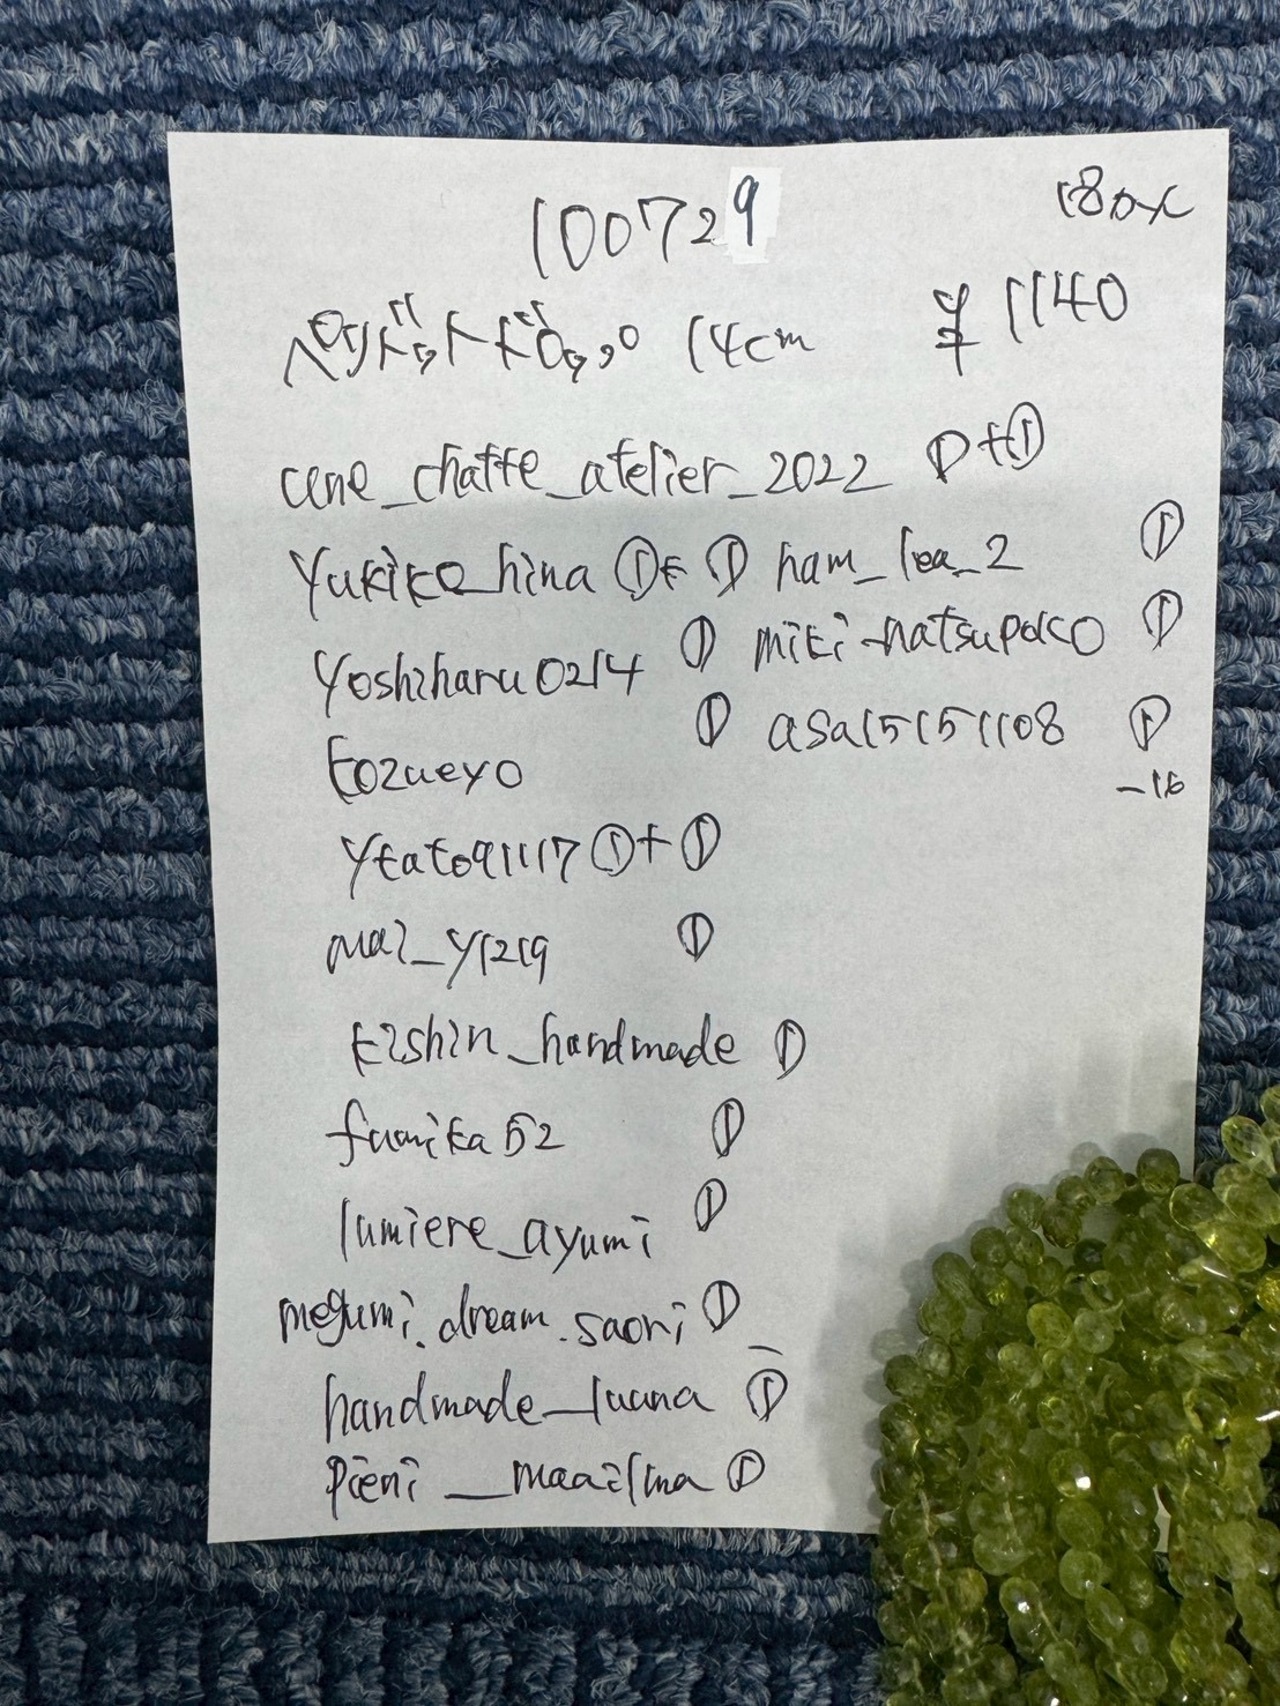 100729
180pc
ペリドットドロップ 14cm ¥1140
cene_chatte_atelier_2022 ①+①
yukiko_hina ①+① ham_lea_2 ①
yoshiharu0214 ① miki_natsupoco ①
kozueyo ① asa15151108 ①
-16
ykato91117 ①+①
mai_y1219 ①
kishin_handmade ①
fumika52 ①
lumiere_ayumi ①
megumi.dream.saori ①
handmade_luana ①
pieni__maailma ①